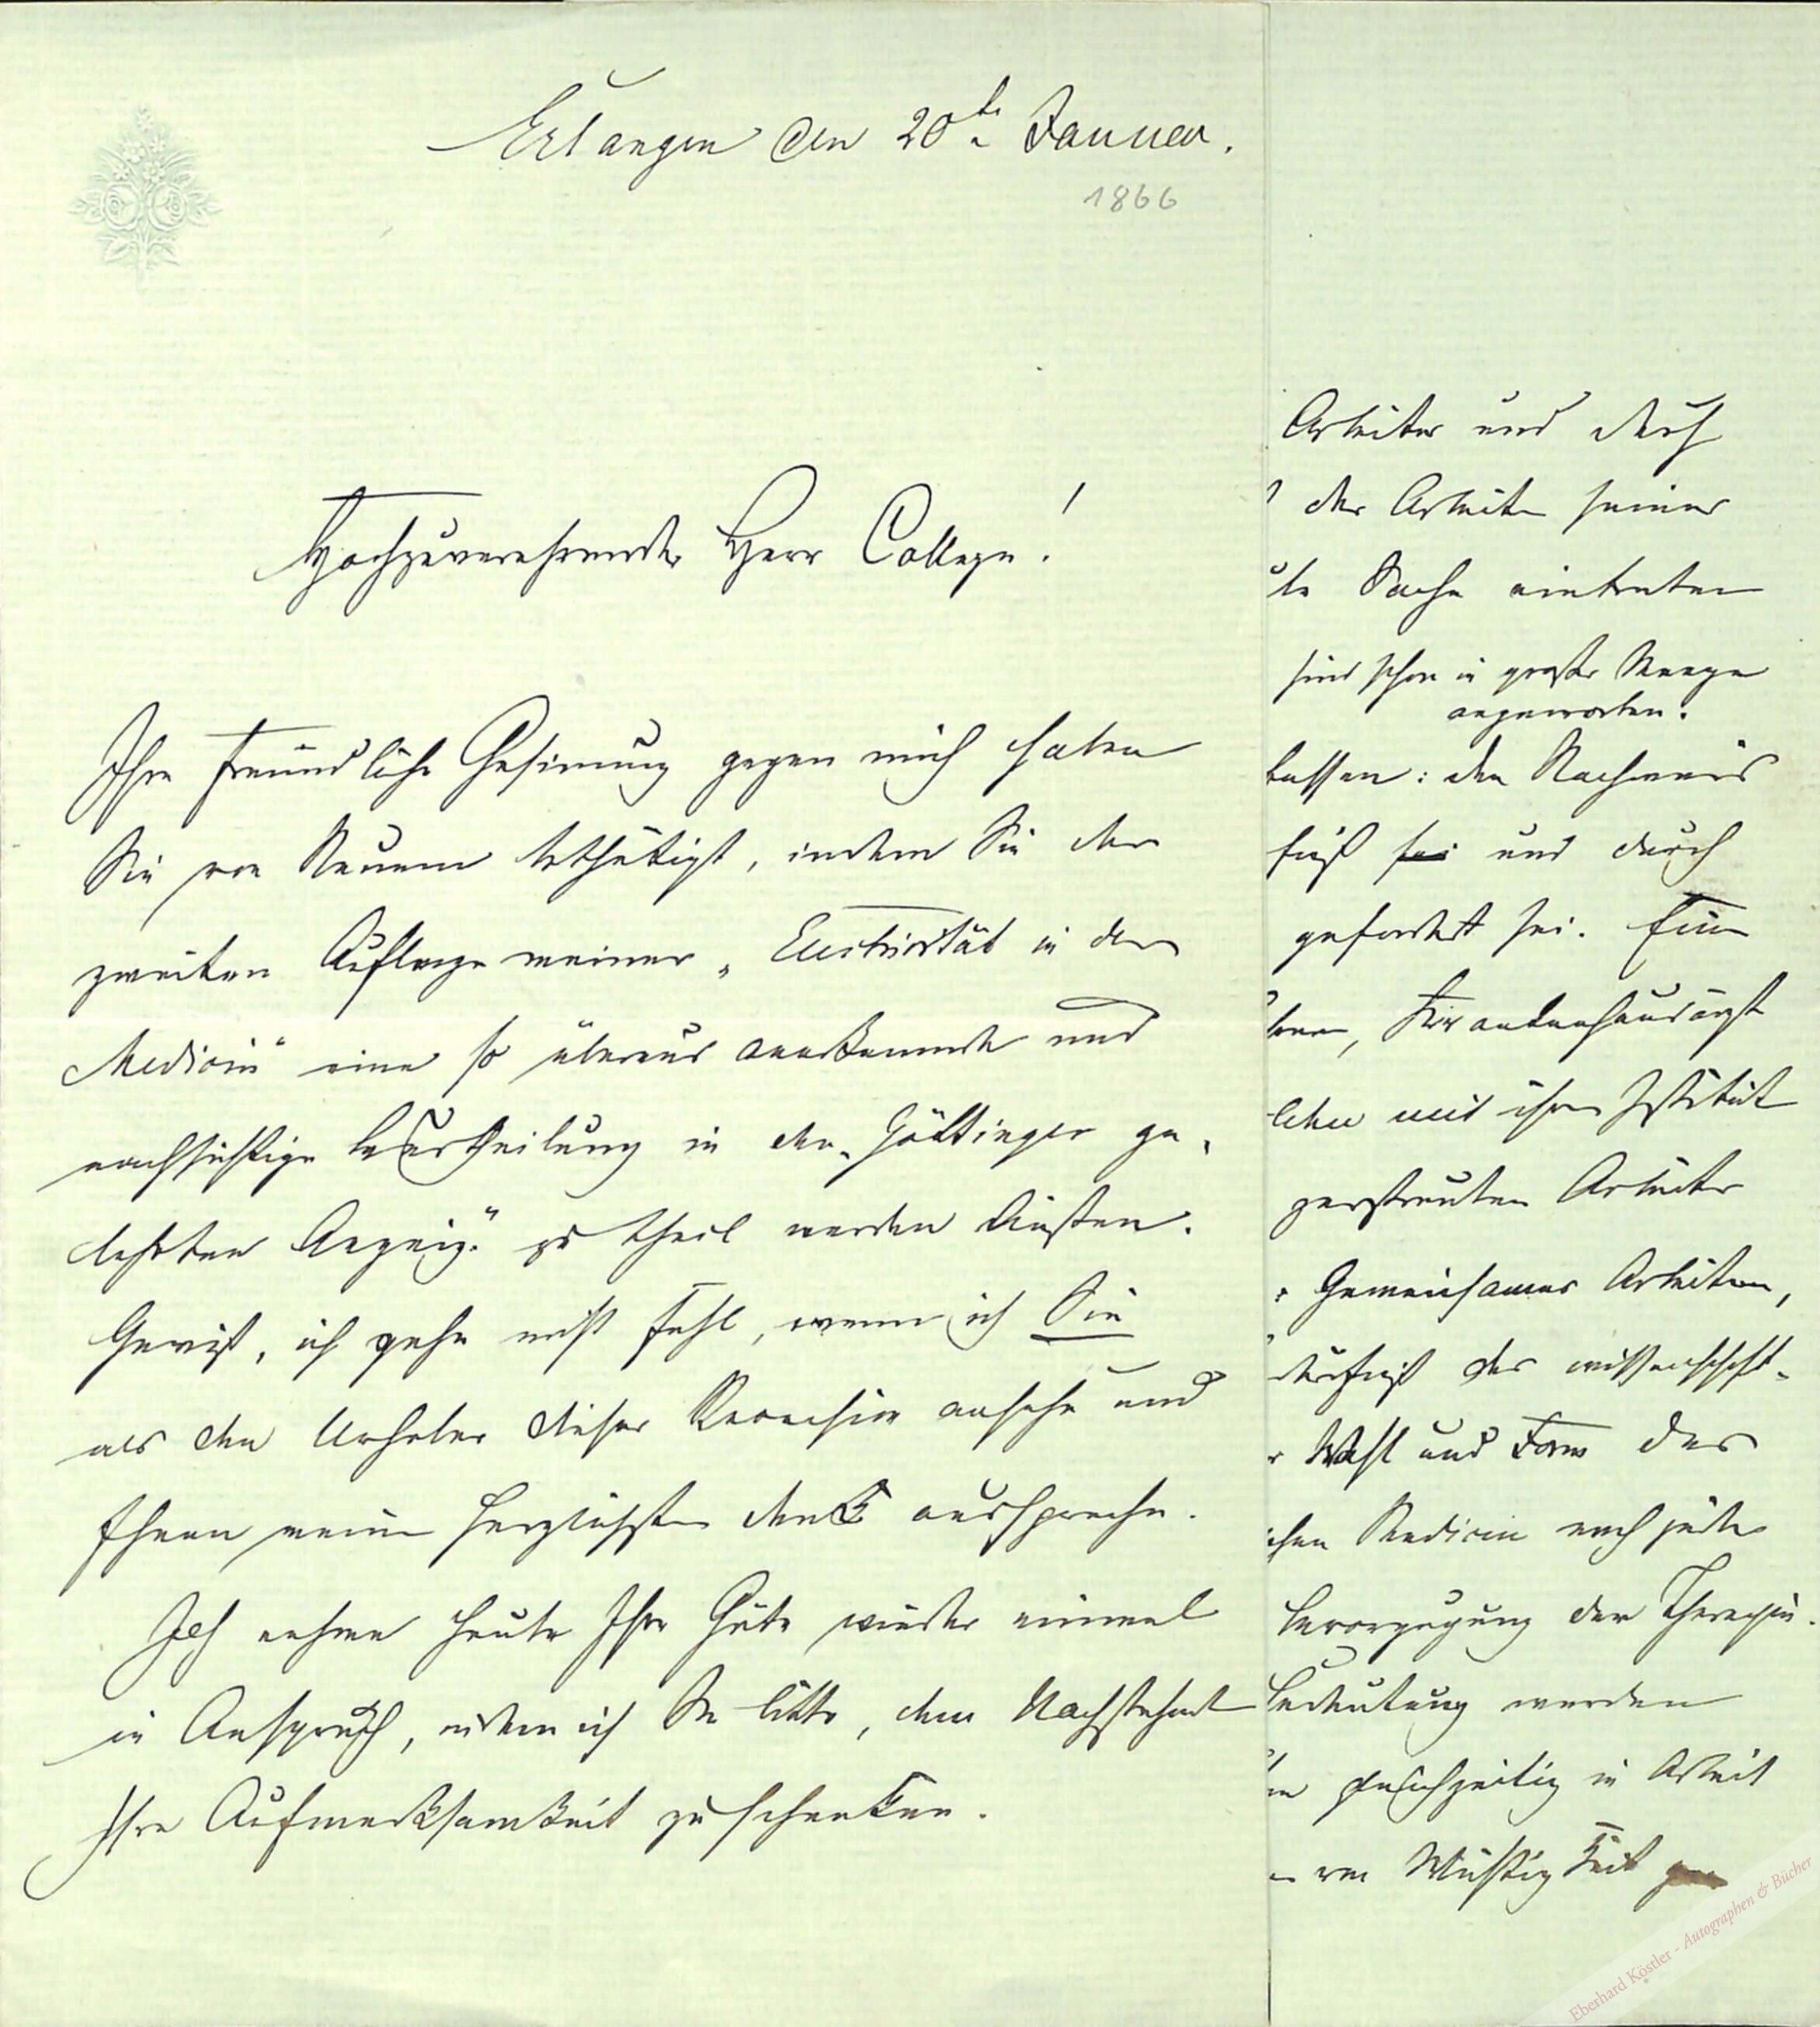 Erlangen den 20ten Januar.
1866
Hochzuverehrender Herr College!
Ihre freundliche Gesinnung gegen mich haben
Sie von Neuem bethätigt, indem Sie der
zweiten Auflage meiner „Electricität in der
Medicin“ eine so überaus anerkennende und
nachsichtige Beurtheilung in den „Göttinger ge-
lehrten Anzeig.“ zu theil werden ließen.
Gewiß, ich gehe nicht fehl, wenn ich Sie
als den Urheber dieser Recension ansehe und
Ihnen meinen herzlichsten Dank ausspreche.
Ich nehme heute Ihre Güte wieder einmal
in Anspruch, indem ich Sie bitte, dem Nachstehenden
Ihre Aufmerksamkeit zu schenken.
Arbeiter und durch
der Arbeiten seiner
Sache eintreten
sind schon in großer Menge
angeworben.
lassen: den Nachweis
sei und durch
gefordert sei. Ein
Krankenhausarzt
mit ihren Institut
zerstreuten Arbeiter
Gemeinsames Arbeiten,
des wissenschaft-
Wahl und Form der
Medicin nach jeder
Bevorzugung der Therapie.
Bedeutung werden
gleichzeitig in Arbeit
von Wichtigkeit
Eberhard Köstler - Autographen & Bücher